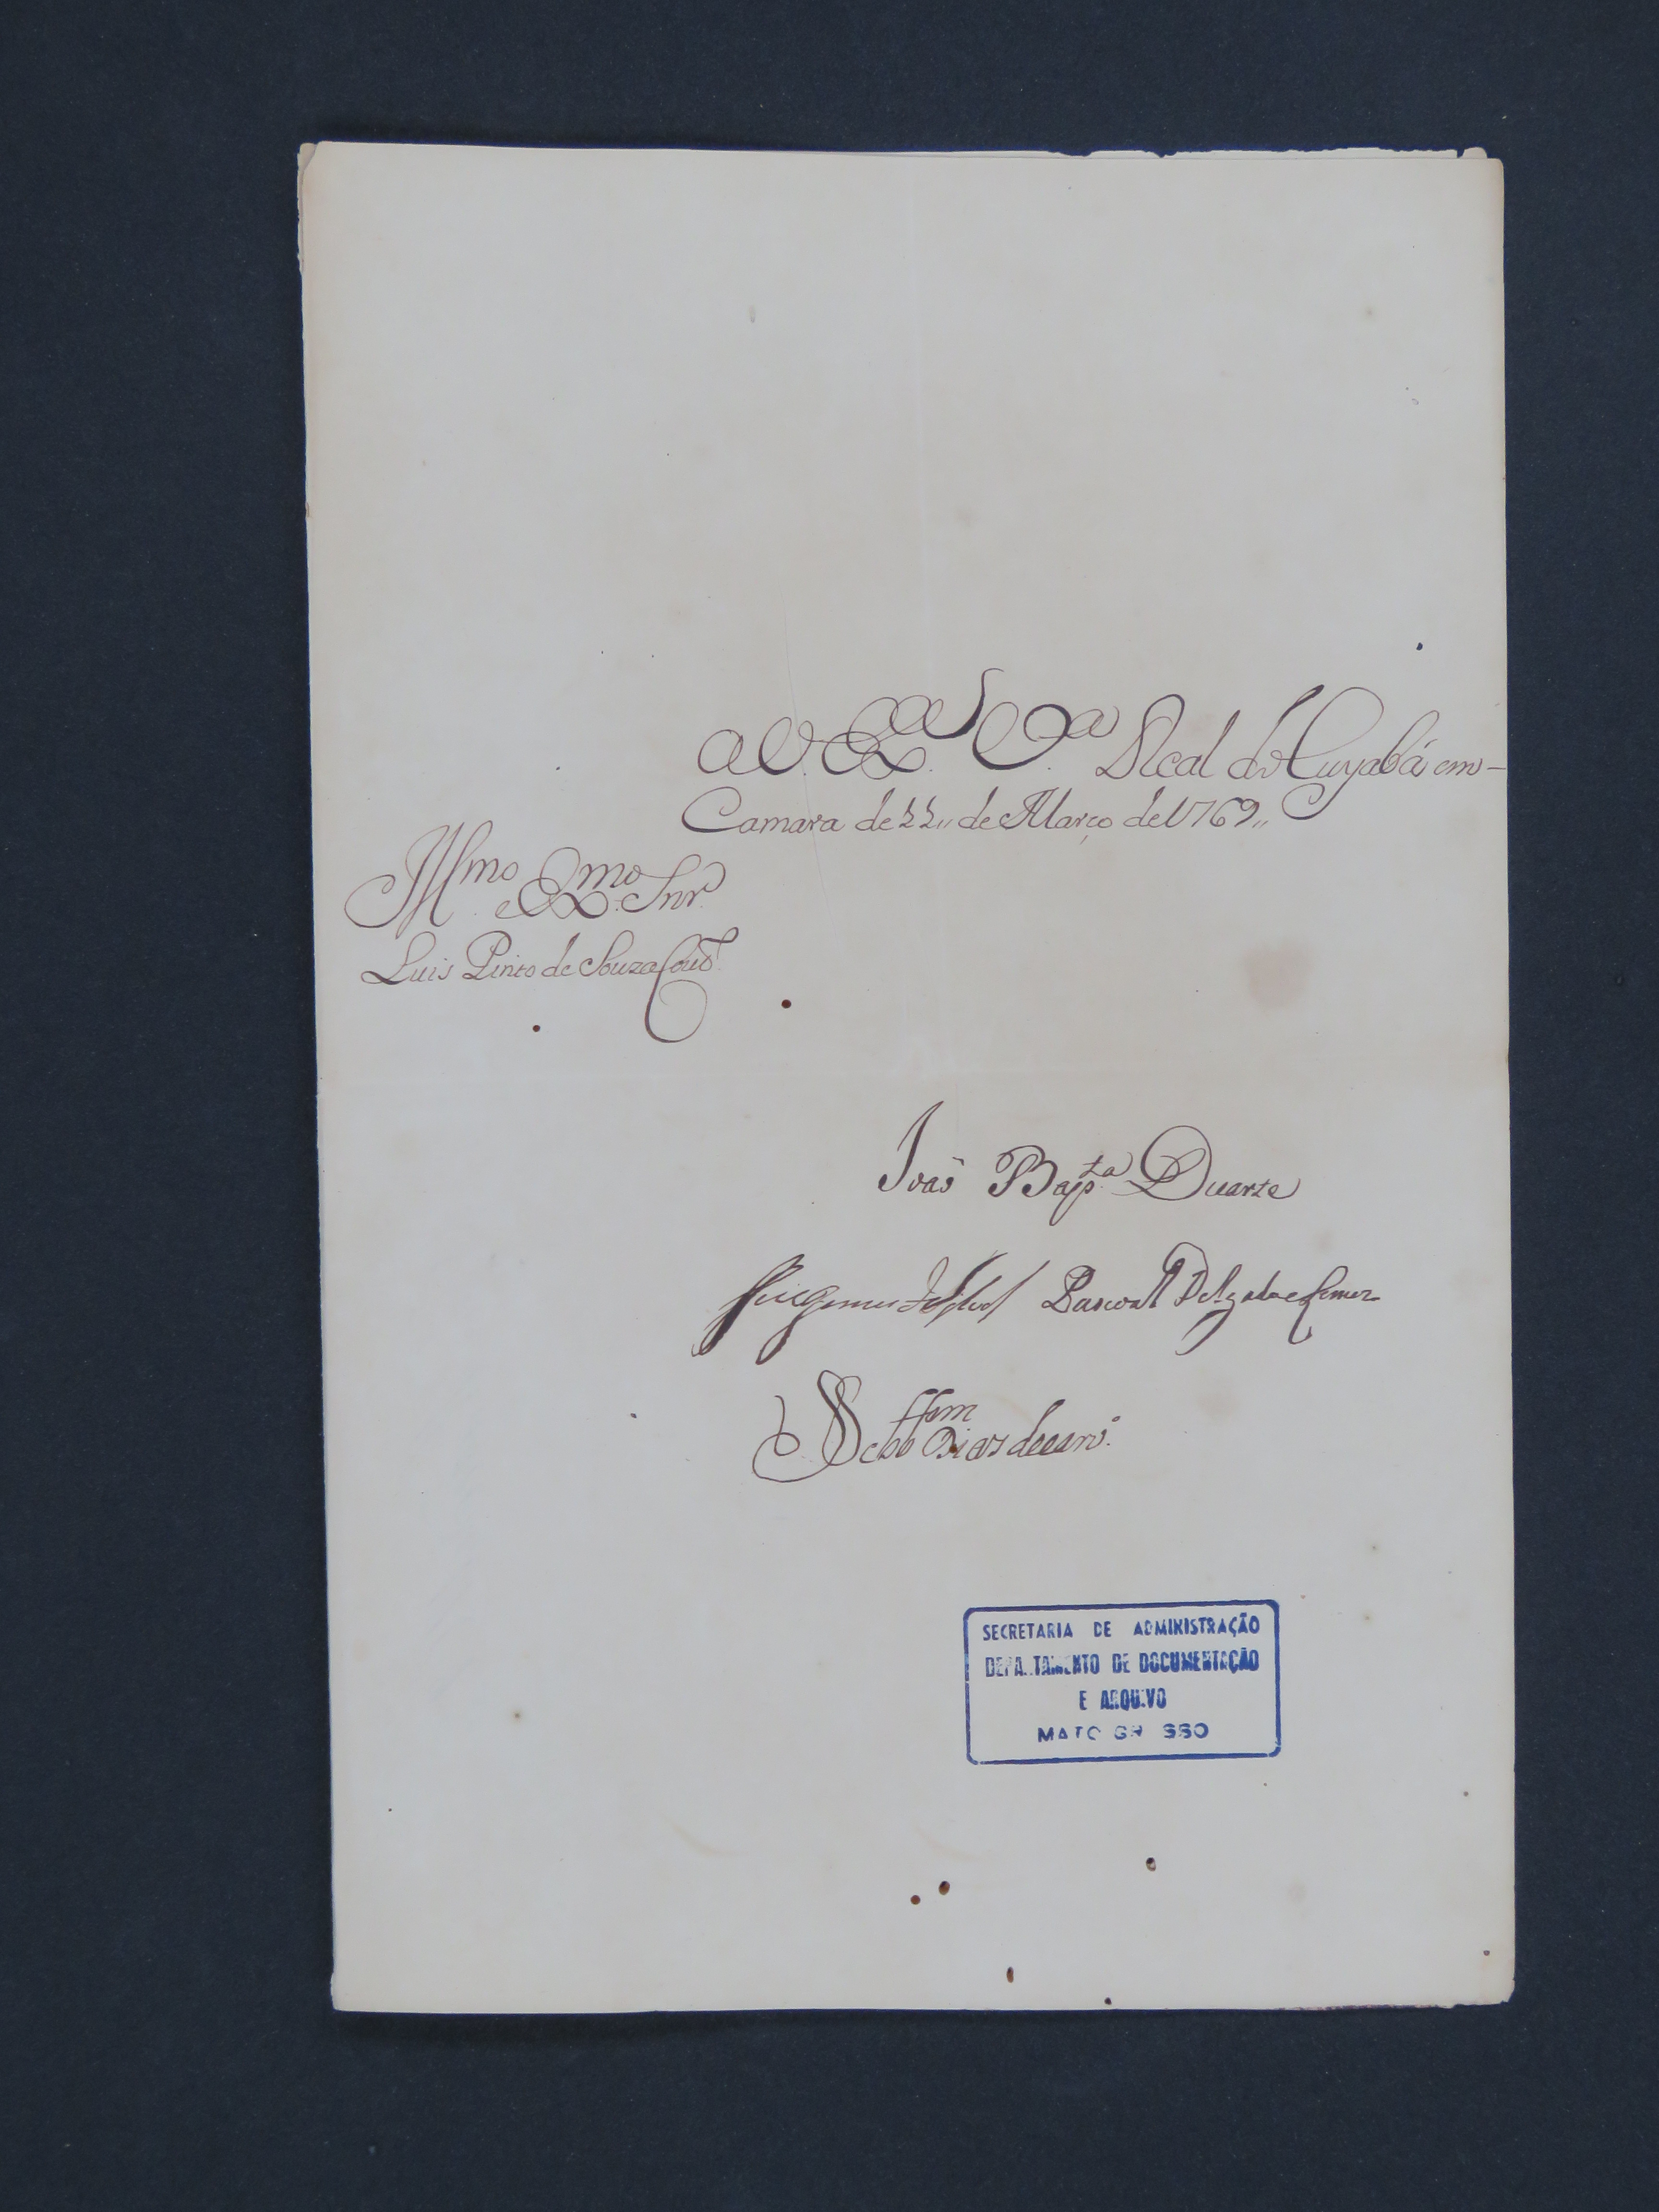 a V. Exa. Va. Real do Cuyabá em
Camara de 22,, de Março de 1769,,
Illmo. e Exmo. Snr.
Luis Pinto de Souza Couto.
João Bapta. Duarte
Gomes da Silva Pascoal Delgado Lemez
Dias de
SECRETARIA DE ADMINISTRAÇÃO
DEPARTAMENTO DE DOCUMENTAÇÃO
E ARQUIVO
MATO GROSSO